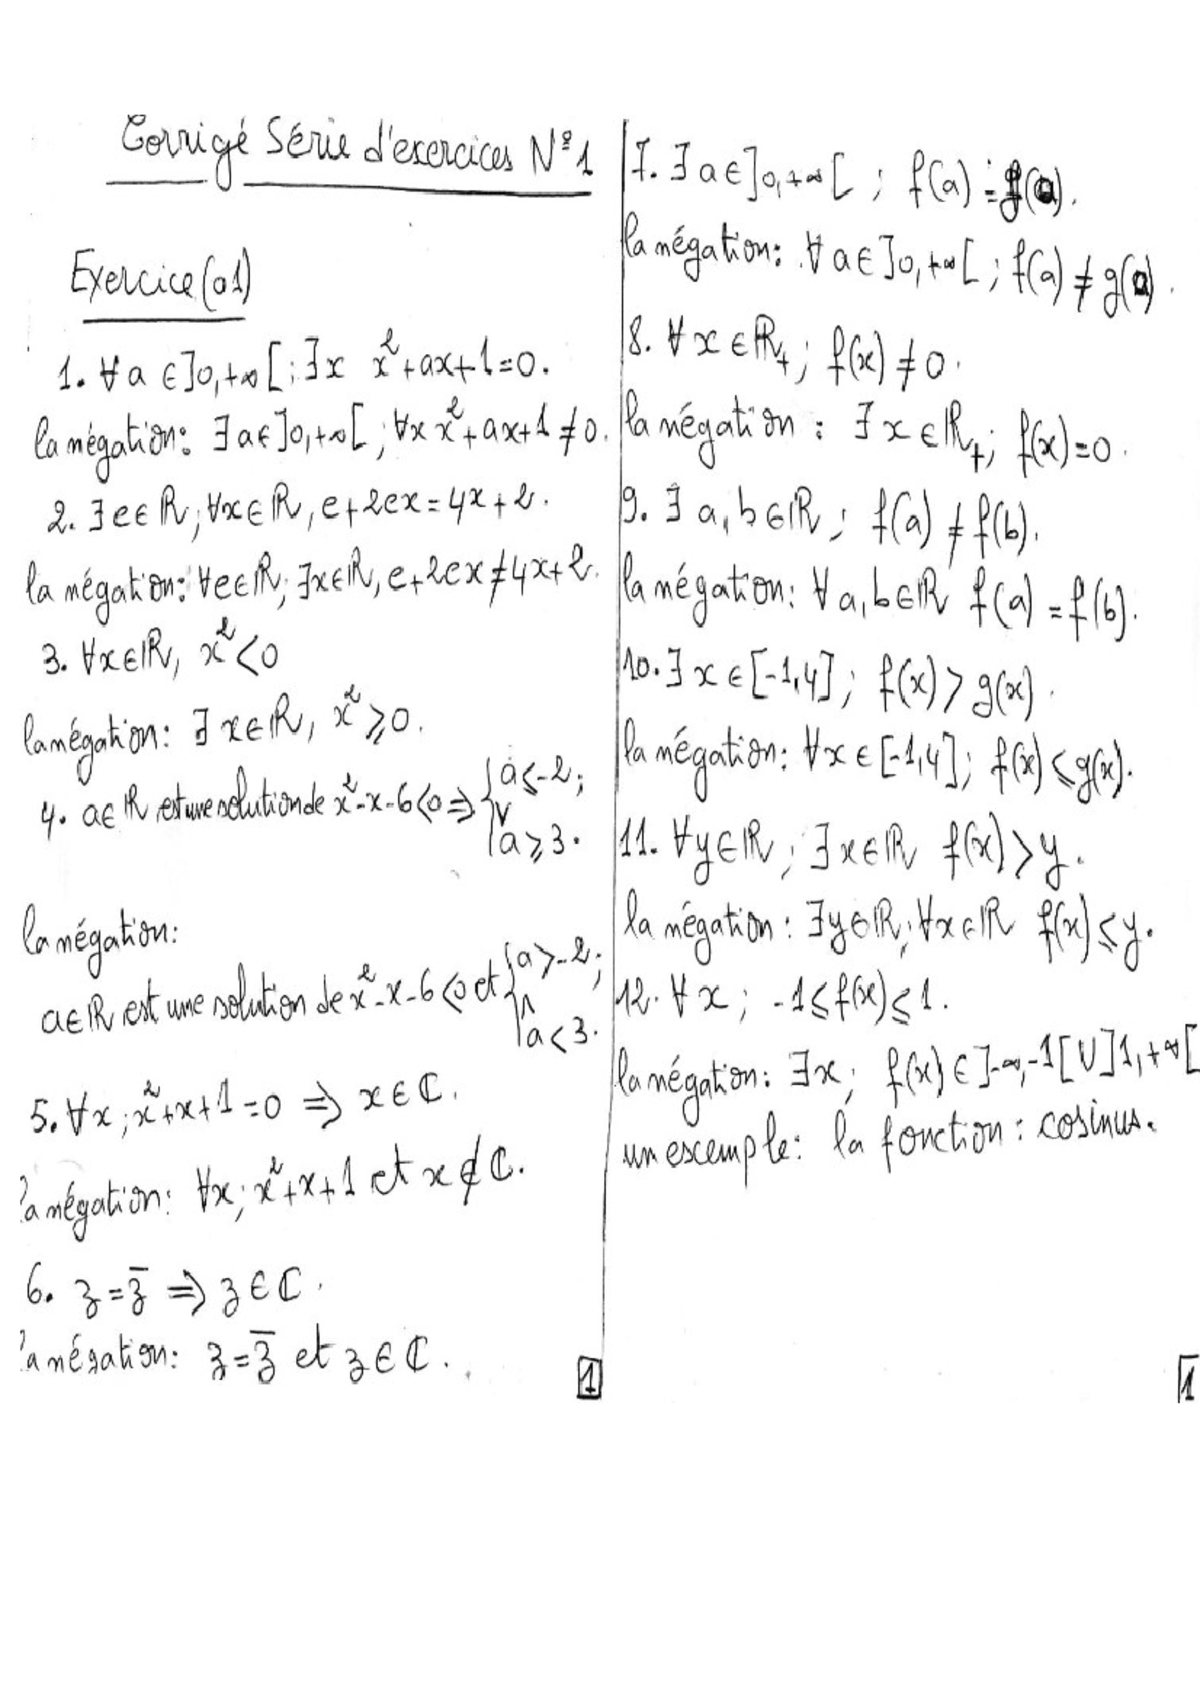 Corrigé Série d'exercices N°1
Exercice (01)
1. ∀ a ∈ ]0,+∞[ ; ∃x x²+ax+1=0.
la négation: ∃ a ∈ ]0,+∞[ ; ∀x x²+ax+1 ≠ 0.
2. ∃ e ∈ ℝ ; ∀x ∈ ℝ, e+2ex = 4x+2.
la négation: ∀e∈ℝ; ∃x∈ℝ, e+2ex ≠ 4x+2.
3. ∀x∈ℝ, x² < 0
la négation: ∃ x∈ℝ, x² ⩾ 0.
4. a∈ℝ est une solution de x²-x-6⩽0 ⇒ { a⩽-2; ∨ a⩾3.
la négation:
a∈ℝ est une solution de x²-x-6⩽0 et { a>-2; ∧ a<3.
5. ∀x ; x²+x+1=0 ⇒ x∈ℂ.
la négation: ∀x; x²+x+1 et x∉ℂ.
6. z = z̄ ⇒ z∈ℂ.
la négation: z = z̄ et z∈ℂ.
1
7. ∃ a∈]0,+∞[ ; f(a) = g(a).
la négation: ∀ a∈]0,+∞[ ; f(a) ≠ g(a).
8. ∀ x∈ℝ₊ ; f(x) ≠ 0.
la négation : ∃ x∈ℝ₊ ; f(x)=0.
9. ∃ a,b∈ℝ ; f(a) ≠ f(b).
la négation: ∀ a,b∈ℝ f(a) = f(b).
10. ∃ x∈[-1,4] ; f(x) > g(x).
la négation: ∀x∈[-1,4] ; f(x) ⩽ g(x).
11. ∀y∈ℝ ; ∃ x∈ℝ f(x) > y.
la négation : ∃y∈ℝ; ∀x∈ℝ f(x) ⩽ y.
12. ∀ x ; -1 ⩽ f(x) ⩽ 1.
la négation: ∃x; f(x) ∈ ]-∞,-1[ ∪ ]1,+∞[
un escemple: la fonction : cosinus.
1